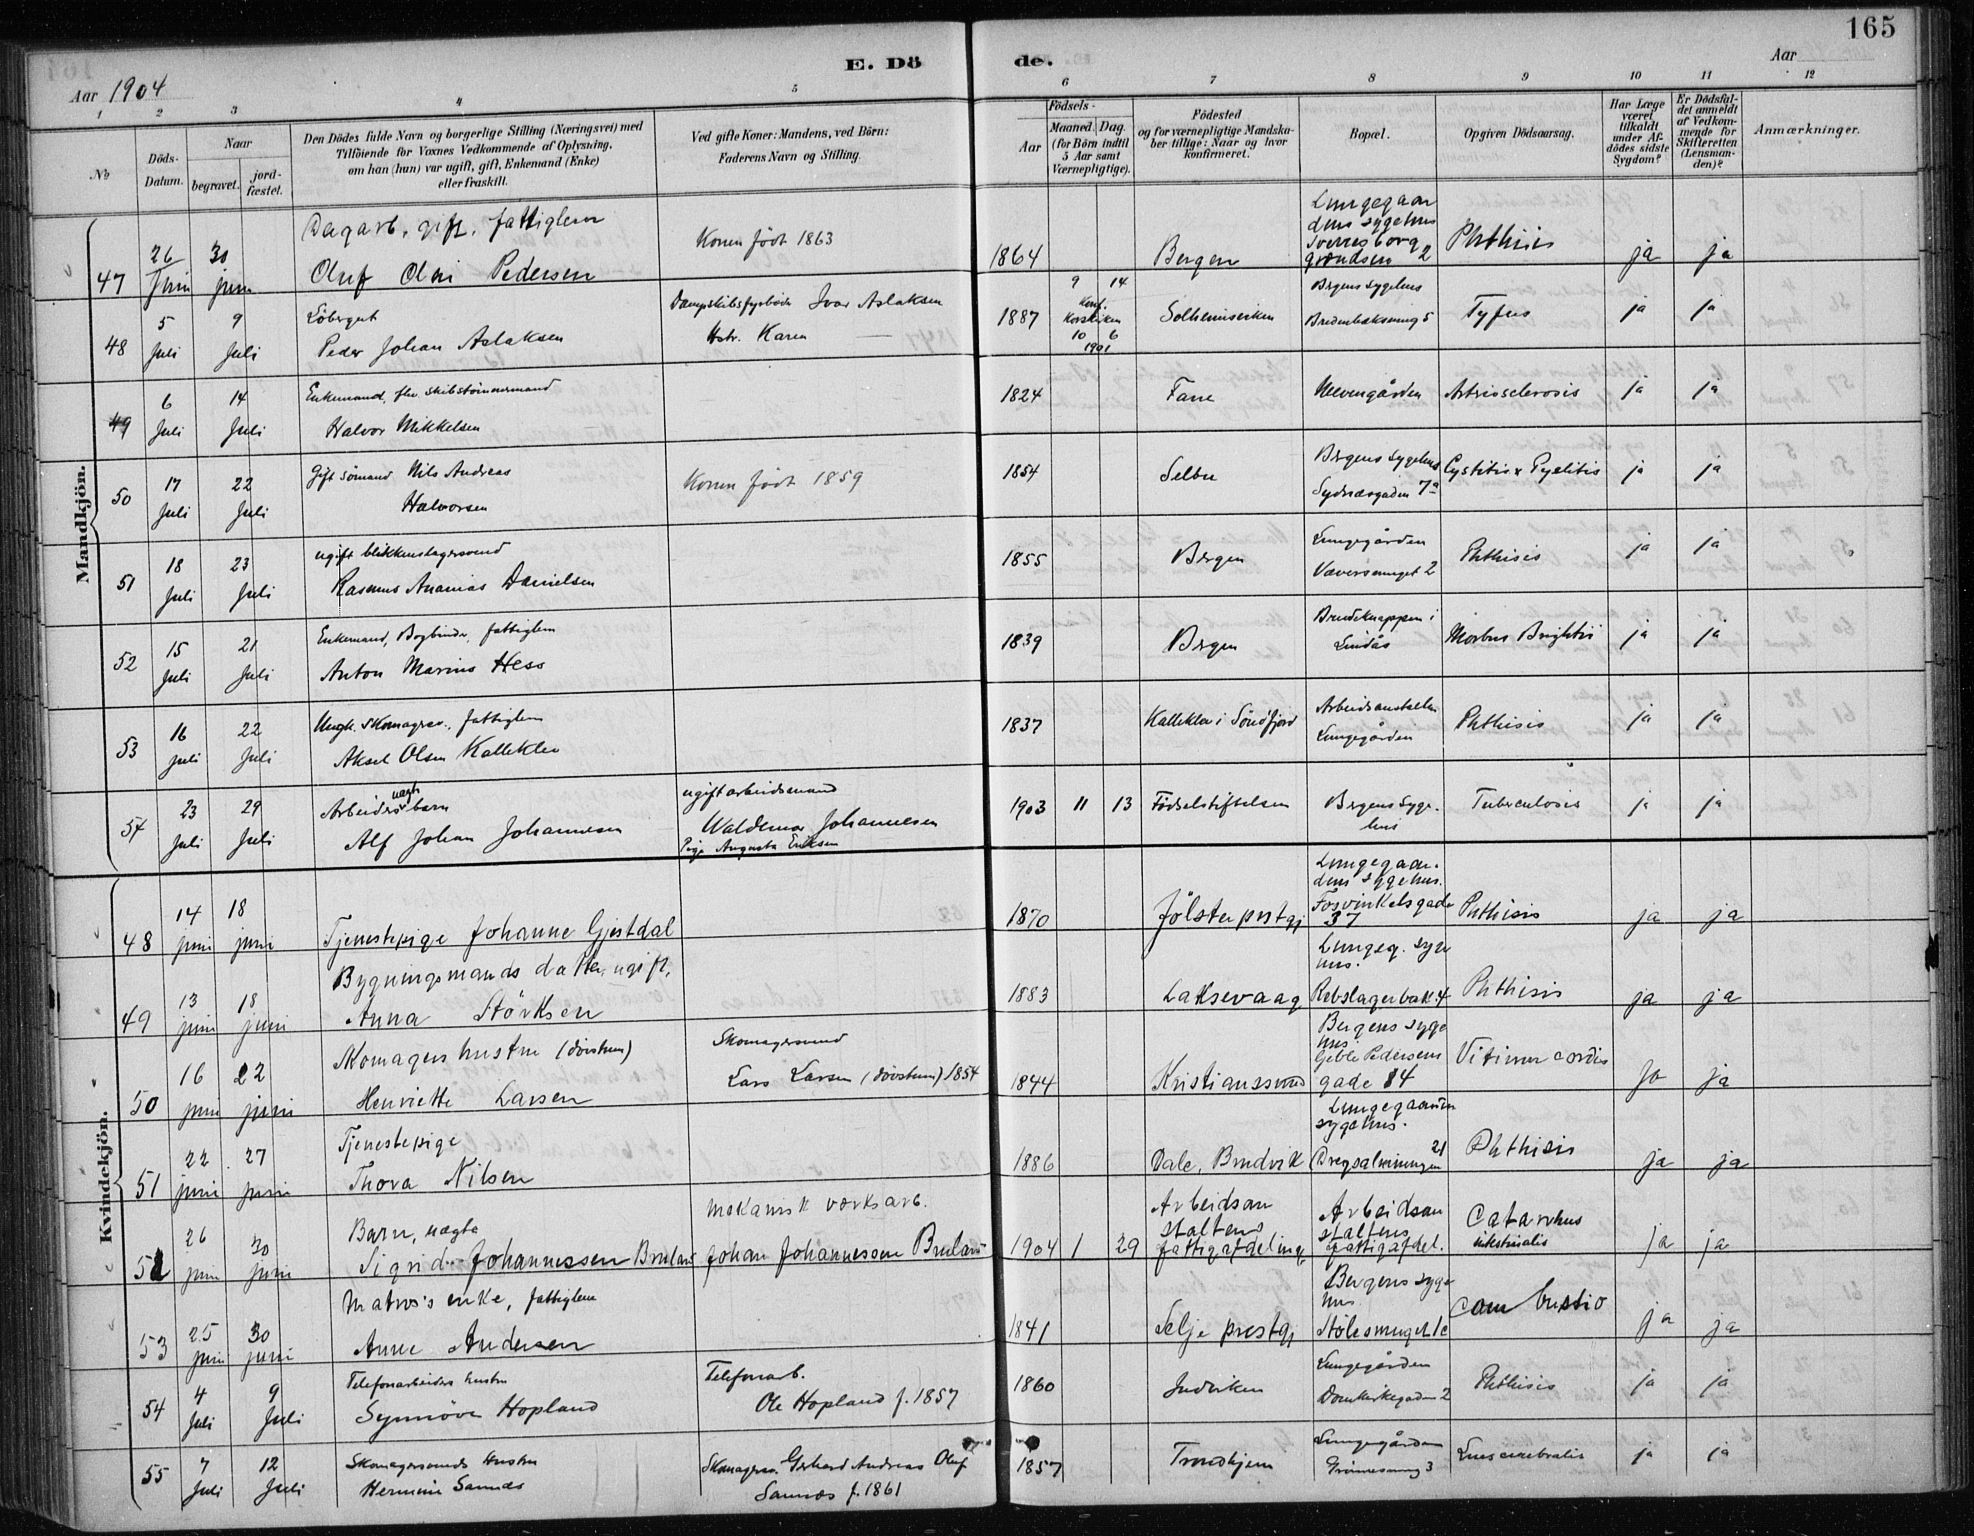 165
E. Dö de.
Aar 1904
Aar
1 2 3 4 5 6 7 8 9 10 11 12
No
Döds-Datum.
Naar
begravet.
jord-fæstet.
Den Dödes fulde Navn og borgerlige Stilling (Næringsvei) med
Tilföiende for Voxnes Vedkommende af Oplysning,
om han (hun) var ugift, gift, Enkemand (Enke)
eller fraskilt.
Ved gifte Koner: Mandens, ved Börn:
Faderens Navn og Stilling.
Födsels-
Aar
Maaned. Dag.
(for Börn indtil
5 Aar samt
Værnepligtige).
Födested
og for værnepligtige Mandska-
ber tillige: Naar og hvor
konfirmeret.
Bopæl.
Opgiven Dödsaarsag.
Har Læge
været
tilkaldt
under Af-
dödes sidste
Sygdom?
Er Dödsfal-
det anmeldt
af Vedkom-
mende for
Skifteretten
(Lensman-
den)?
Anmærkninger.
Mandkjön.
47 26 Juni 30 juni Dagarb., gift, fattiglem
Oluf Olai Pedersen
Konen født 1863
1864 Bergen
Lungegaar
dens sygehus
Sverresborg
grændsen 2
Phthisis ja ja
48 5 Juli 9 Juli Löbergut
Peder Johan Aslaksen
Dampskibsfyrböder Ivar Aslaksen
Hstr. Karen
1887 9 14
Konf.
Korskirken
10 6
1901
Solheimsviken
Bergens Sygehus
Bredenbæksmug 5
Tyfus ja ja
49 6 Juli 14 Juli Enkemand, fhv. skibstømmermand
Halvor Mikkelsen
1824 Fane Meevengården Artriosclerosis ja ja
50 17 Juli 22 Juli Gift sömand Nils Andreas
Halvorsen
Konen født 1859
1854 Selbu
Bergens Sygehus
Sydnæsgaden 7a
Cystitis & Pyelitis ja ja
51 18 Juli 23 Juli ugift blikkenslagersvend
Rasmus Ananias Danielsen
1855 Bergen
Lungegården
Væversmuget 2
Phthisis ja ja
52 15 Juli 21 Juli Enkemand, Bogbinder, fattiglem
Anton Marius Hess
1839 Bergen
Bruseknappen i
Lindås
Morbus Brightii ja ja
53 16 juli 22 Juli Ungk. skomagersv., fattiglem
Aksel Olsen Kalleklev
1837 Kalleklev i Söndfjord
Arbeidsanstalten
Lungegården
Phthisis ja ja
54 23 Juli 29 Juli Arbeiders uægte barn
Alf Johan Johannesen
ugift arbeidsmand
Waldemar Johannesen
Pige Augusta Eriksen
1903 11 13 Födselstiftelsen
Bergens Syge-
hus
Tuberculosis ja ja
Kvindekjön.
48 14 juni 18 juni Tjenestepige Johanne Gjestdal
1870 Jölster prestgj
Lungegaar-
dens sygehus.
Fosvinkelsgade
37
Phthisis ja ja
49 13 juni 18 juni Bygningsmands datter, ugift,
Anna Störksen
1883 Laksevaag
Lungeg. syge
hus.
Rebslagerbak 4
Phthisis ja ja
50 16 juni 22 juni Skomagers hustru (dövstum)
Henriette Larsen
Skomagersvend
Lars Larsen (dövstum) 1854
1844 Kristianssund
Bergens syge
hus
Geble Pedersens
gade 14
Vitium cordis Ja ja
51 22 juni 27 juni Tjenestepige
Thora Nilsen
1886 Dale, Brudvik
Lungegaardens
sygehus.
Dregsalmenningen 21
Phthisis ja ja
52 26 juni 30 juni Barn, uægte
Sigrid Johannessen
mekanisk værksarb.
Johan Johannessen
1904 1 29
Arbeidsan
staltens
fattigafdeling
Arbeidsan
staltens
fattigafdel.
Catarrhus
intestinalis
ja ja
53 25 juni 30 juni Matros's enke, fattiglem
Anne Andersen
1841 Selje prestgj
Bergens syge
hus
Stölesmuget 1c
Combustio ja ja
54 4 Juli 9 Juli Telefonarbeiders hustru
Synnöve Hopland
Telefonarb.
Ole Hopland f. 1857
1860 Indviken
Lungegården
Domkirkegaden 2
Phthisis ja ja
55 7 Juli 12 Juli Skomagersvends hustru
Hermine Sannes
Skomagersv. Gerhard Andreas Oluf
Sannes f. 1861
1857 Trondhjem
Lungegården
Grönnesmug 3
Lues cerebralis ja ja